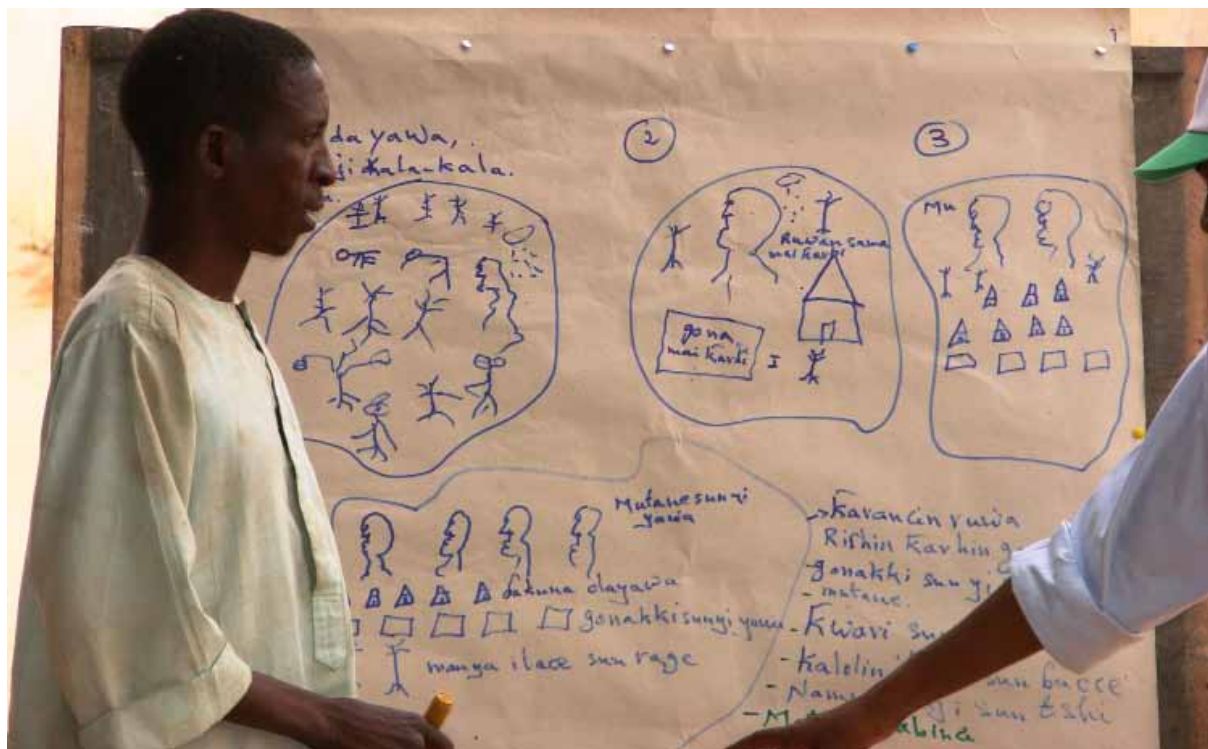 da yawa,
kala-kala.
2
Ruwan sama
mai karhi
gona
mai karhi
I
3
Mu
Mutane sunyi
yawa
dakuna dayawa
gonakki sunyi yawa
manya itace sun rage
Karancin ruwa
Rishin karhin g
- gonakki sun yi
- mutane.
- Kwari su
- Kalolin sun bacce
- Namu gi sun tshi
- M abina